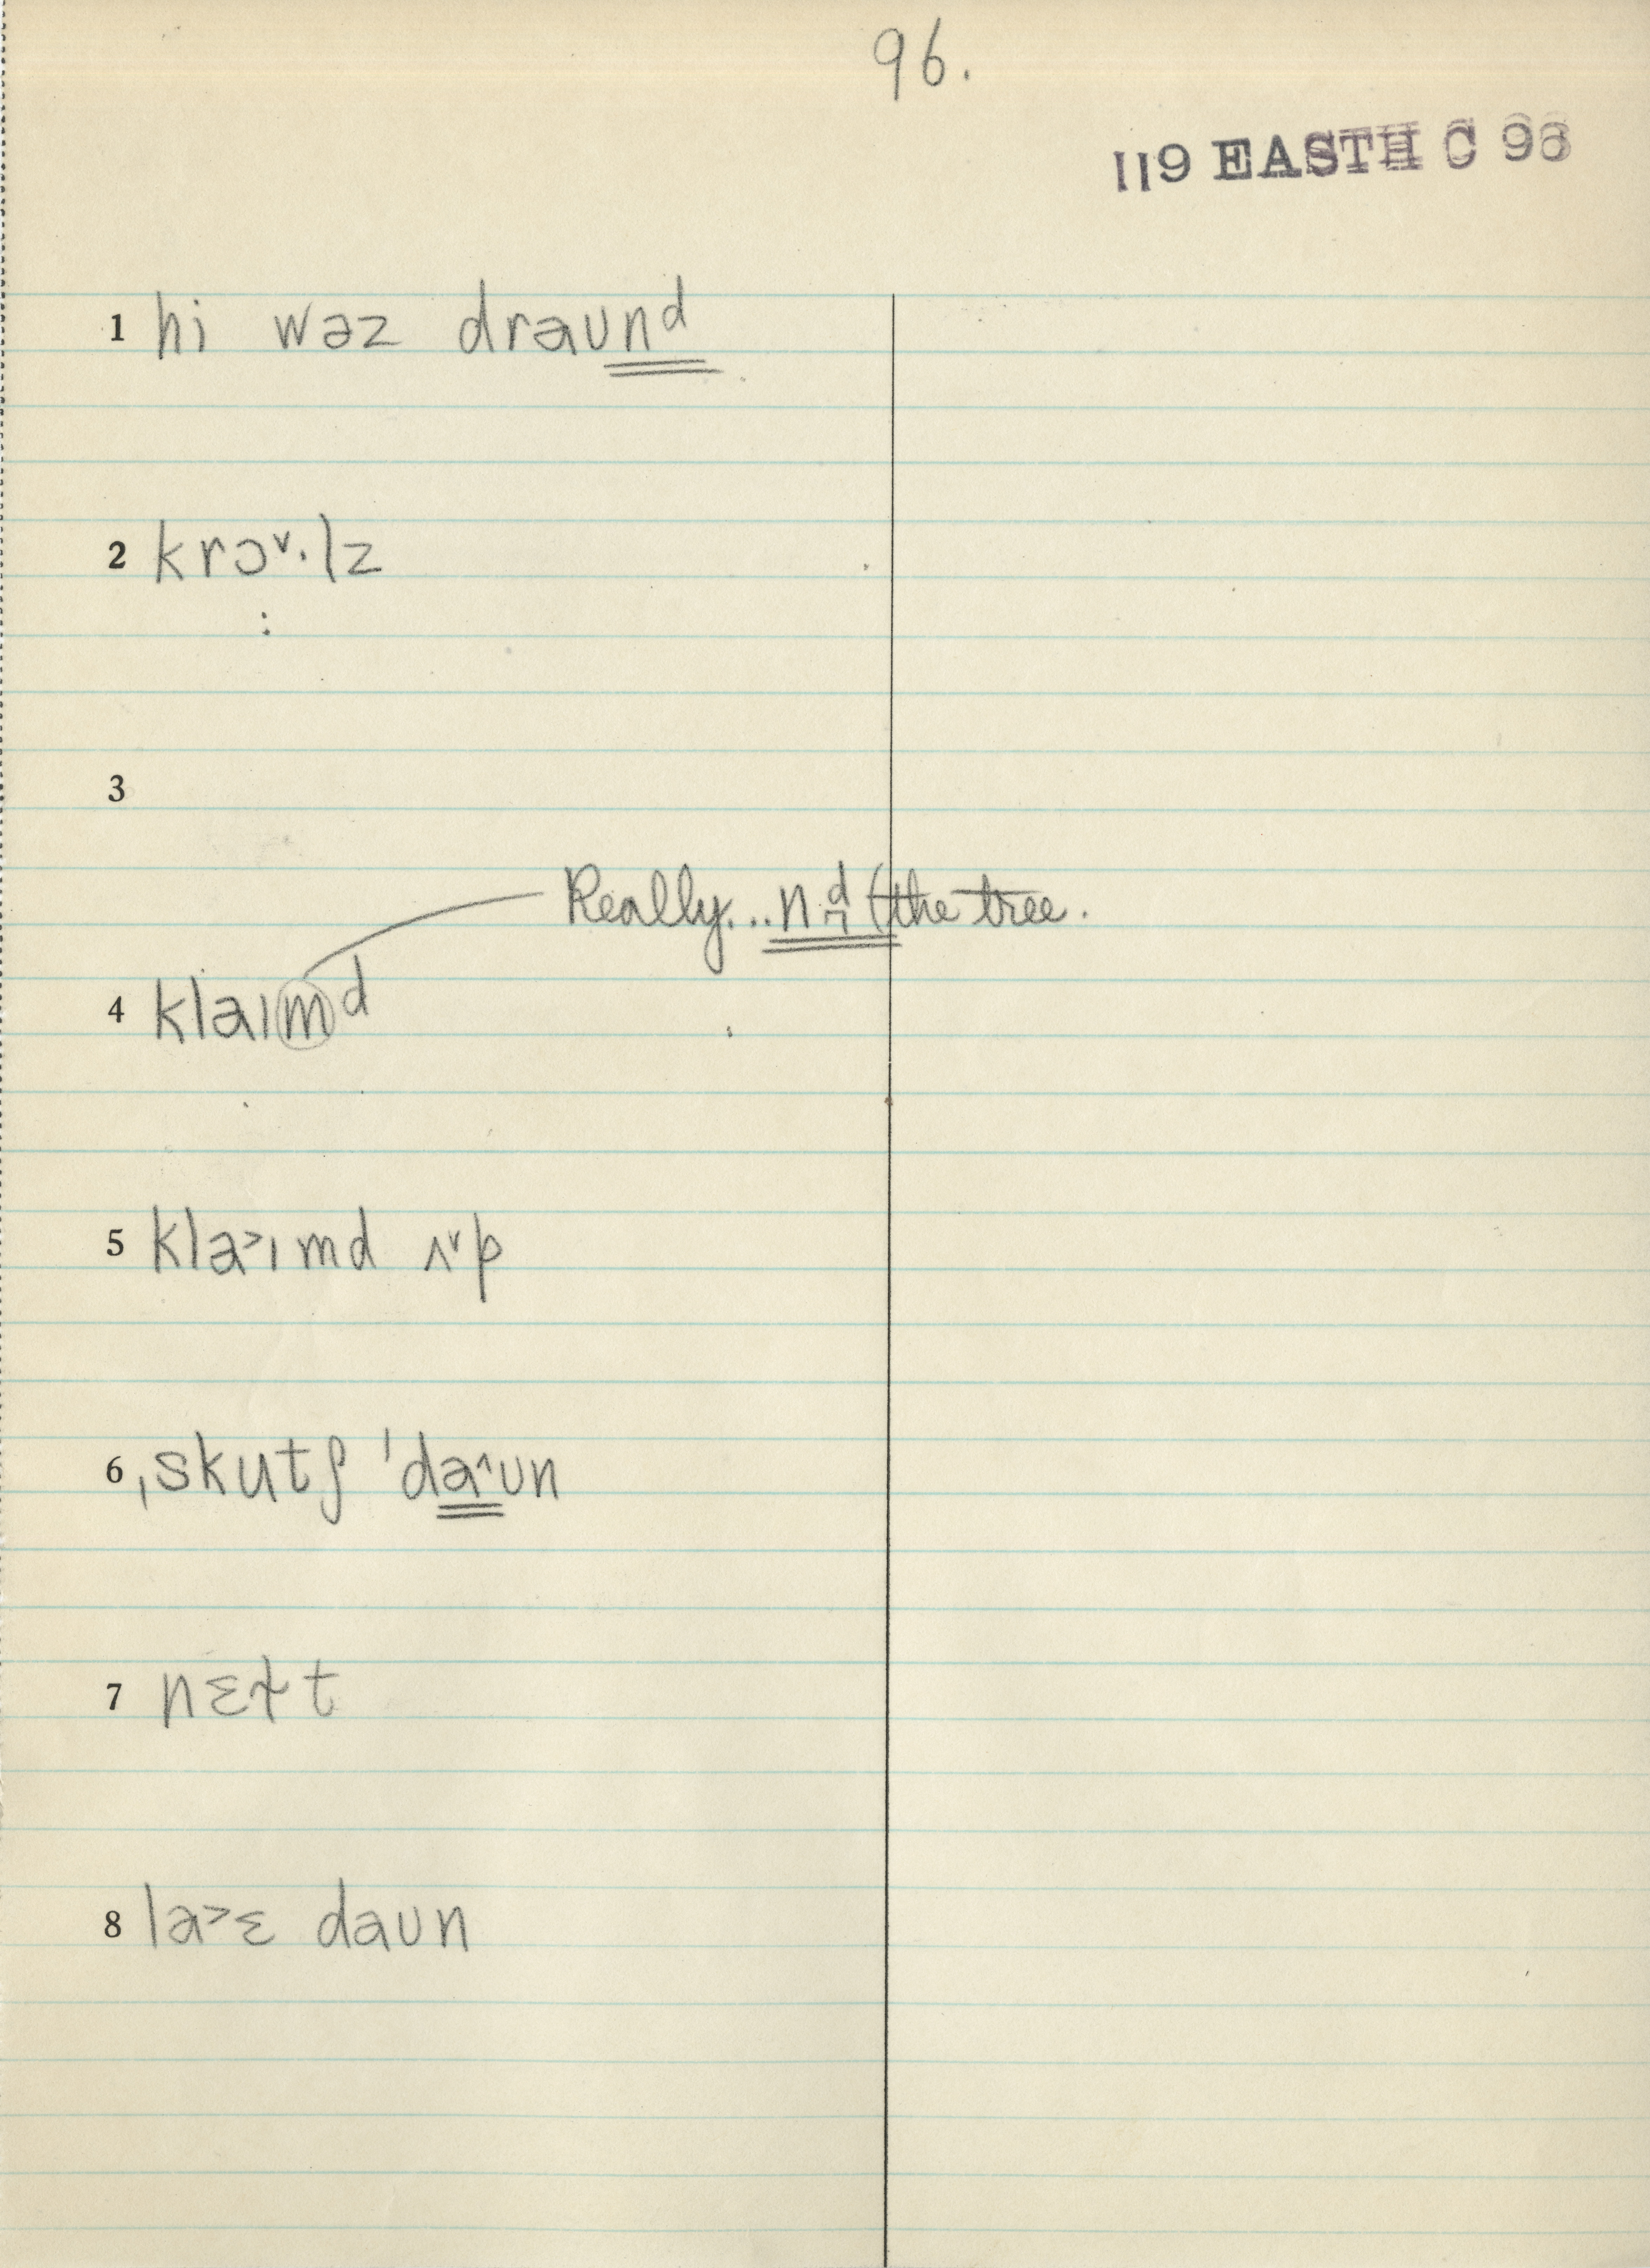 96.
119 EASTH C 96
1 hi wəz draʊnᵈ
2 krɔ˅·lz
:
3
Really...nᵈ̪ (the tree.
4 klaɪmᵈ
5 kla˃ɪmd ʌ˅p
6 ˌskutʃ ˈda˄ʊn
7 nɛɫt
8 la˃ɛ daʊn